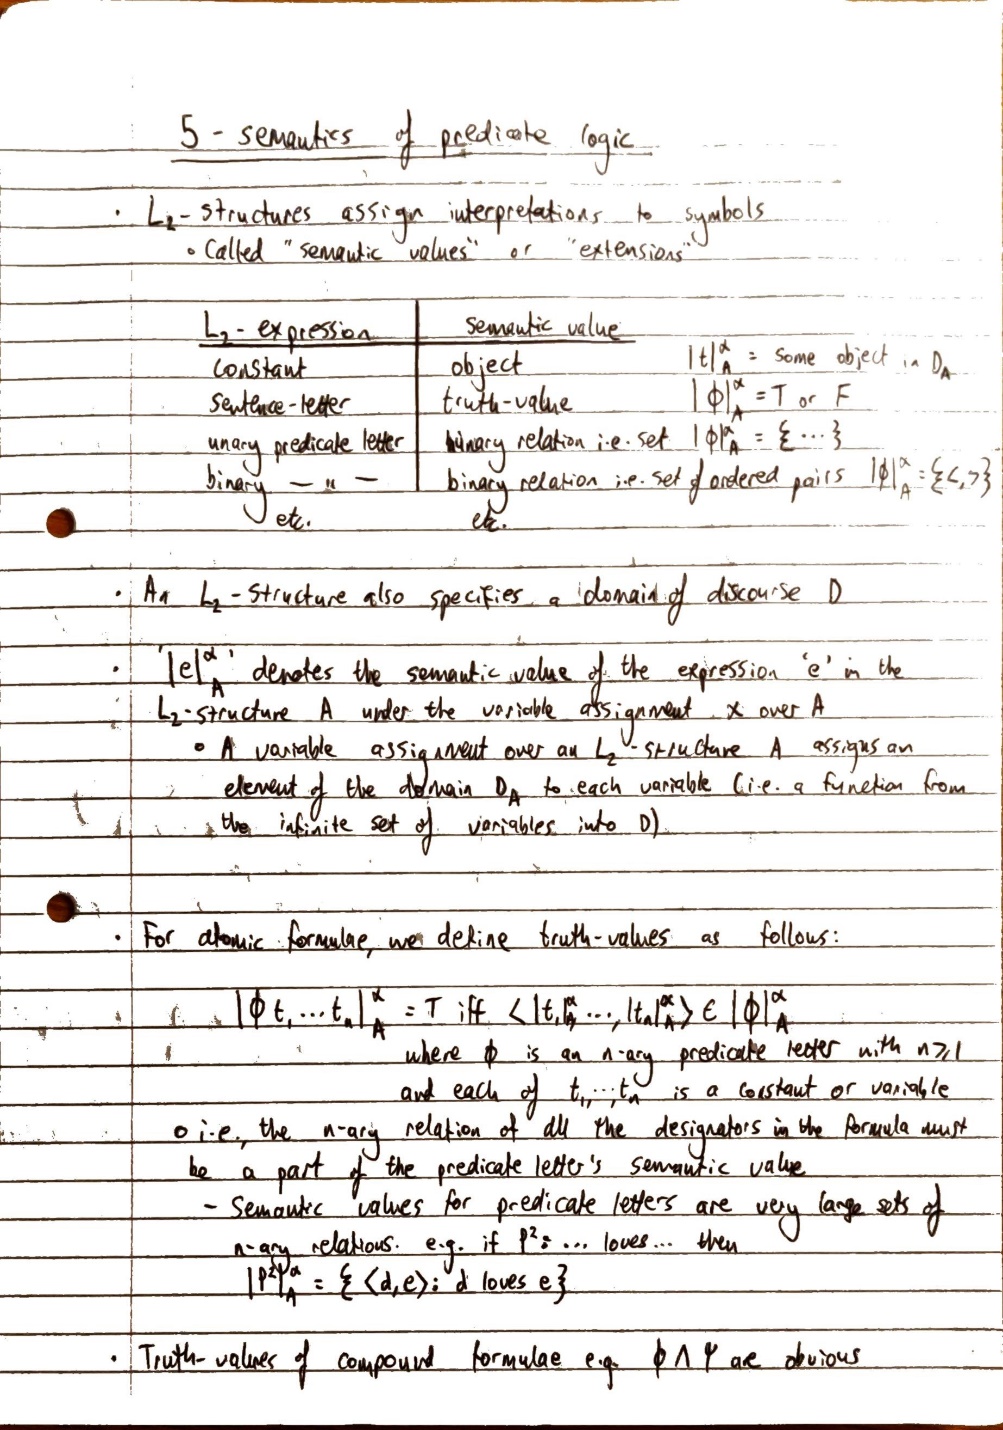 5 - semantics of predicate logic
· L₂-structures assign interpretations to symbols
∘ Called "semantic values" or "extensions"
L₂-expression semantic value
constant object |t|ᵅ_A = some object in D_A
sentence-letter truth-value |ϕ|ᵅ_A = T or F
unary predicate letter binary relation i.e. set |ϕ|ᵅ_A = {...}
binary — " — binary relation i.e. set of ordered pairs |ϕ|ᵅ_A = {<,>}
etc. etc.
· An L₂-structure also specifies a domain of discourse D
· '|e|ᵅ_A' denotes the semantic value of the expression 'e' in the
L₂-structure A under the variable assignment α over A
∘ A variable assignment over an L₂-structure A assigns an
element of the domain D_A to each variable (i.e. a function from
the infinite set of variables into D)
· For atomic formulae, we define truth-values as follows:
|ϕt₁...tₙ|ᵅ_A = T iff <|t₁|ᵅ_A ..., |tₙ|ᵅ_A> ∈ |ϕ|ᵅ_A
where ϕ is an n-ary predicate letter with n⩾1
and each of t₁,...,tₙ is a constant or variable
∘ i.e., the n-ary relation of all the designators in the formula must
be a part of the predicate letter's semantic value
- Semantic values for predicate letters are very large sets of
n-ary relations. e.g. if P²: ... loves... then
|P²|ᵅ_A = {<d,e>: d loves e}
· Truth-values of compound formulae e.g. ϕ ∧ ψ are obvious